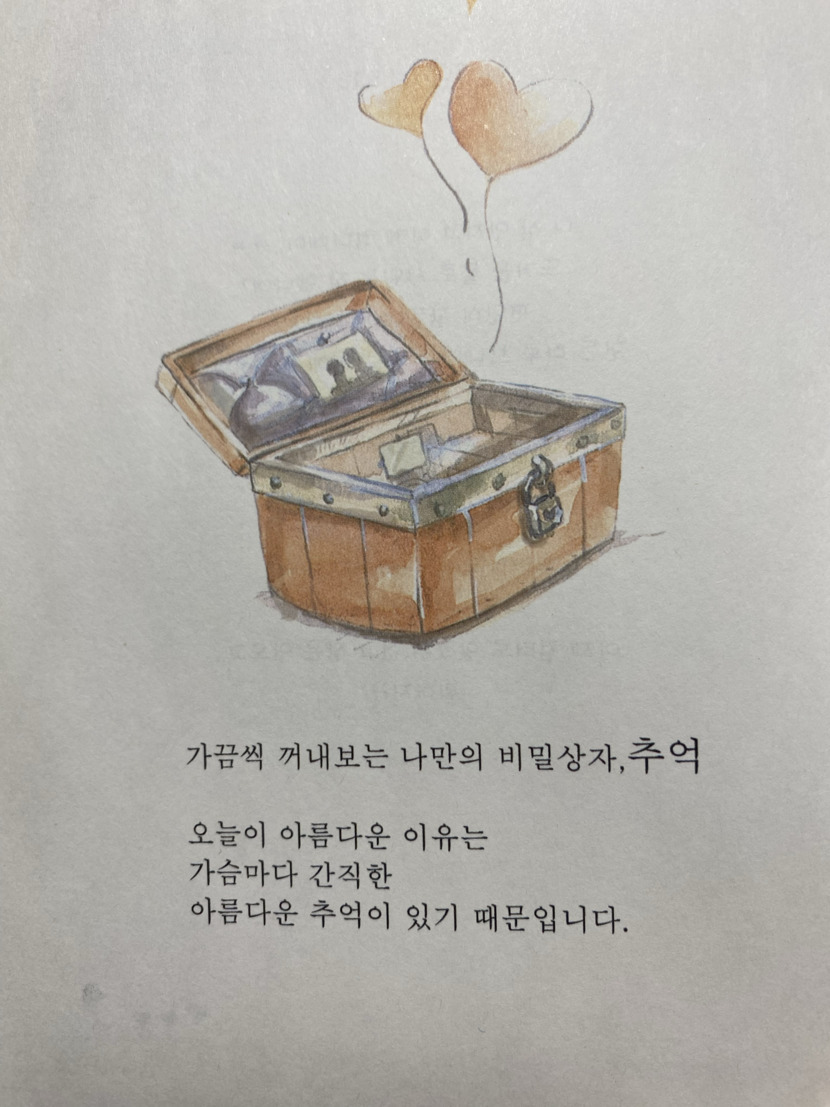 가끔씩 꺼내보는 나만의 비밀상자,추억
오늘이 아름다운 이유는
가슴마다 간직한
아름다운 추억이 있기 때문입니다.